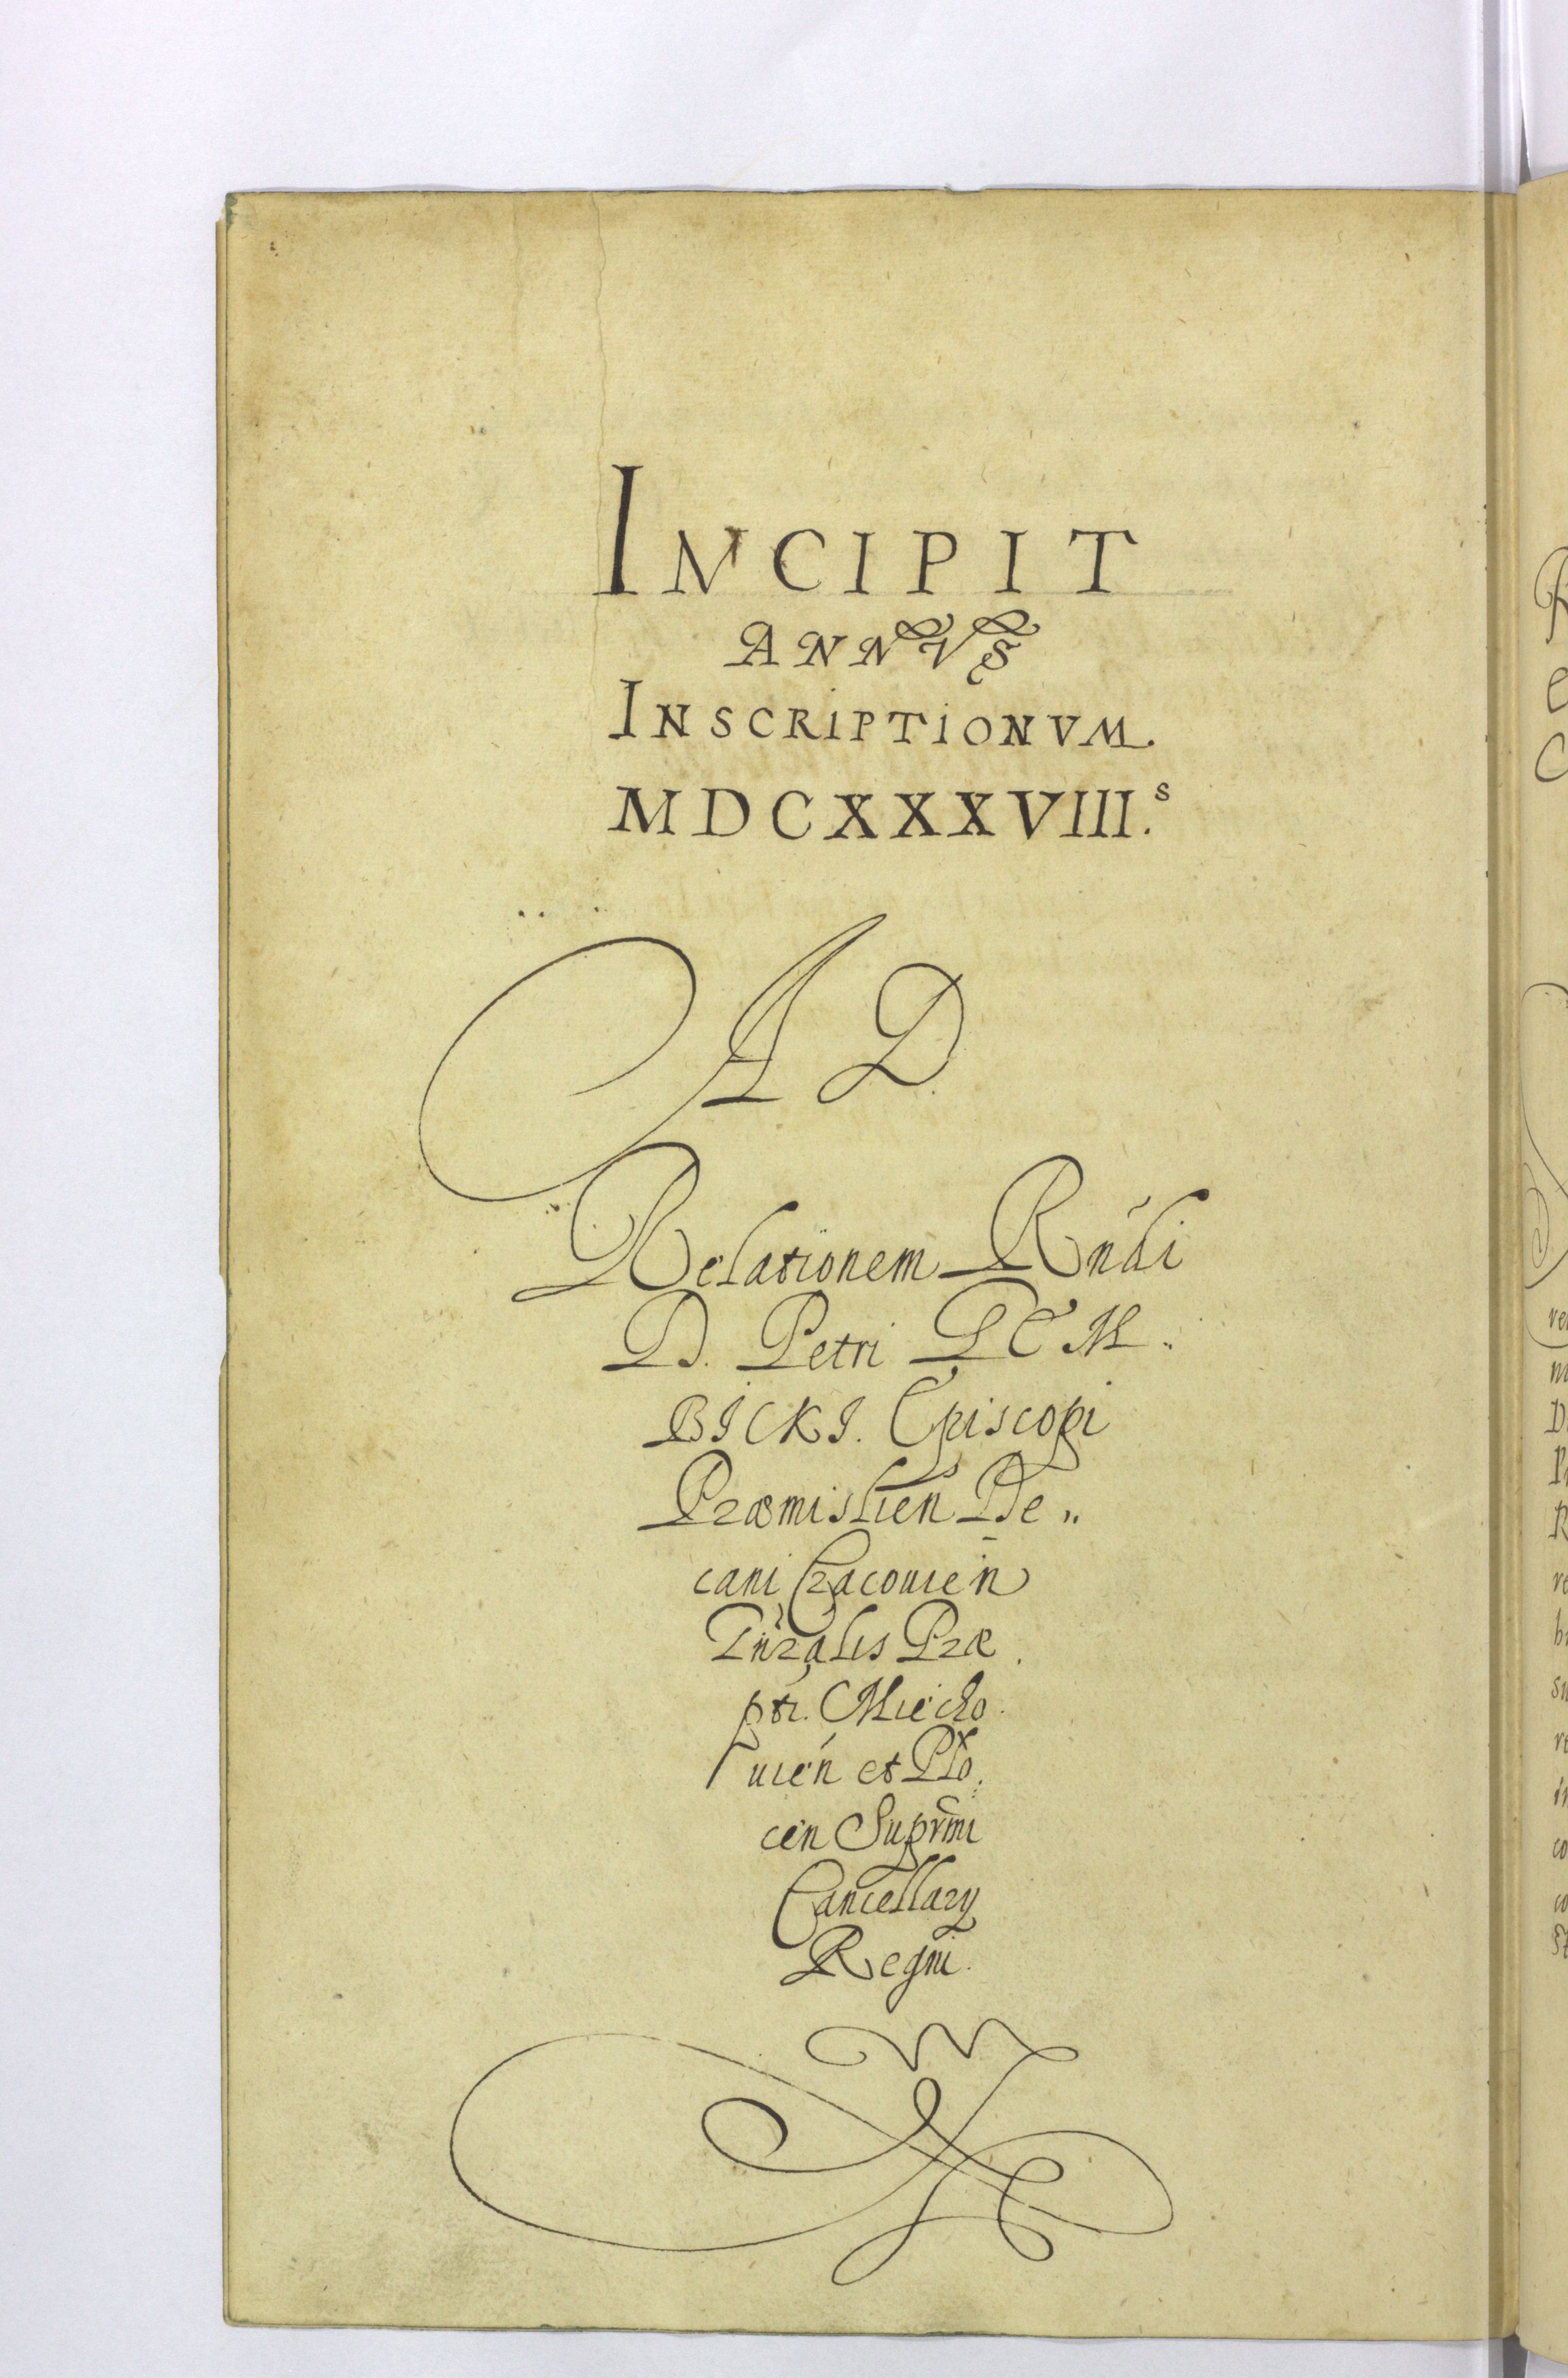 INCIPIT
ANNVS
INSCRIPTIONVM.
MDCXXXVIII.s
AD
Relationem Rndi
D. Petri GEM„
BICKI. Episcopi
Præmislien De„
cani Cracouien
Gnralis Præ
pti. Miecho
uien et Plo
cen Suprmi
Cancellary
Regni.